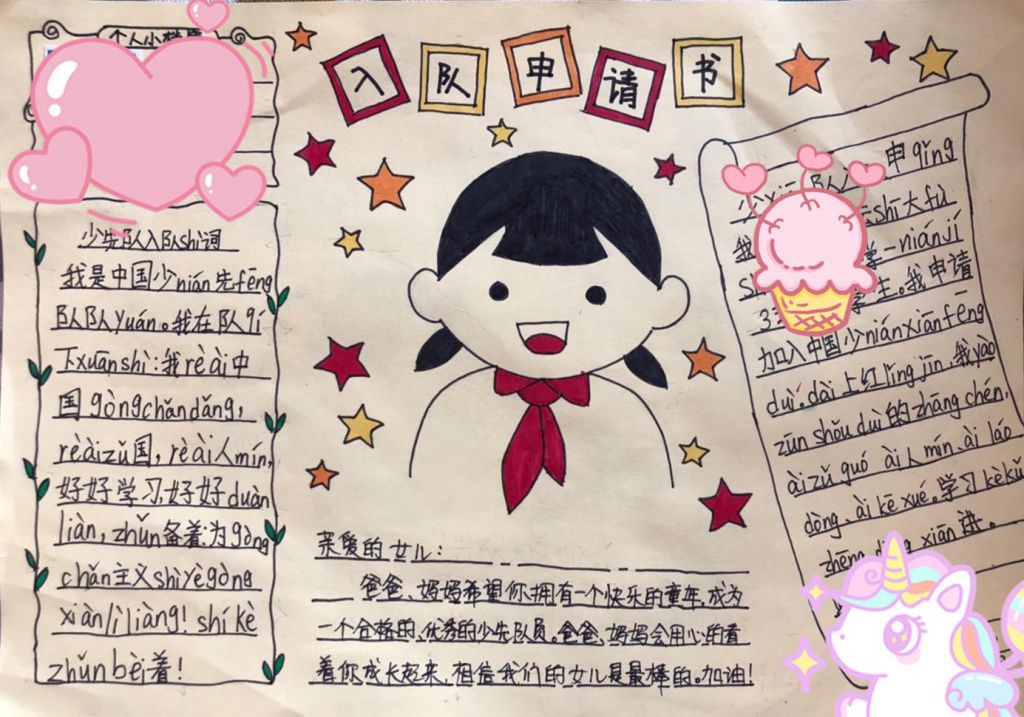 入队申请书
个人小档
少先队入队shi词
我是中国少nián先fēng
队队yuán。我在队qí
下xuānshì:我rè ài中
国gòngchǎndǎng,
rèàizǔ国,rèài人mín,
好好学习,好好duàn
liàn,zhǔn备着:为gòng
chǎn主义shìyègòng
xiànlìliàng! shí kè
zhǔnbèi着!
亲爱的女儿:
爸爸、妈妈希望你拥有一个快乐的童年,成为
一个合格的、优秀的少先队员。爸爸、妈妈会用心的看
着你成长起来,相信我们的女儿是最棒的。加油!
申qǐng
shī大fù
我 学一niánjí
3 学生。我申请
加入中国少niánxiānfēng
duì。dài上红lǐngjīn,我yào
zūn shǒu duì的zhāng chéng,
àizǔ guó ài人mín、ài láo
dòng、ài kē xué。学习kèkǔ
zhēng xiān进。